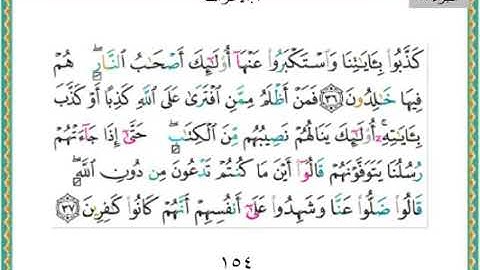 كَذَّبُوا۟ بِـَٔايَـٰتِنَا وَٱسْتَكْبَرُوا۟ عَنْهَآ أُو۟لَـٰٓئِكَ أَصْحَـٰبُ ٱلنَّارِ ۖ هُمْ
فِيهَا خَـٰلِدُونَ ٣٦ فَمَنْ أَظْلَمُ مِمَّنِ ٱفْتَرَىٰ عَلَى ٱللَّهِ كَذِبًا أَوْ كَذَّبَ
بِـَٔايَـٰتِهِۦٓ ۚ أُو۟لَـٰٓئِكَ يَنَالُهُمْ نَصِيبُهُم مِّنَ ٱلْكِتَـٰبِ ۖ حَتَّىٰٓ إِذَا جَآءَتْهُمْ
رُسُلُنَا يَتَوَفَّوْنَهُمْ قَالُوٓا۟ أَيْنَ مَا كُنتُمْ تَدْعُونَ مِن دُونِ ٱللَّهِ ۖ
قَالُوا۟ ضَلُّوا۟ عَنَّا وَشَهِدُوا۟ عَلَىٰٓ أَنفُسِهِمْ أَنَّهُمْ كَانُوا۟ كَـٰفِرِينَ ٣٧
١٥٤